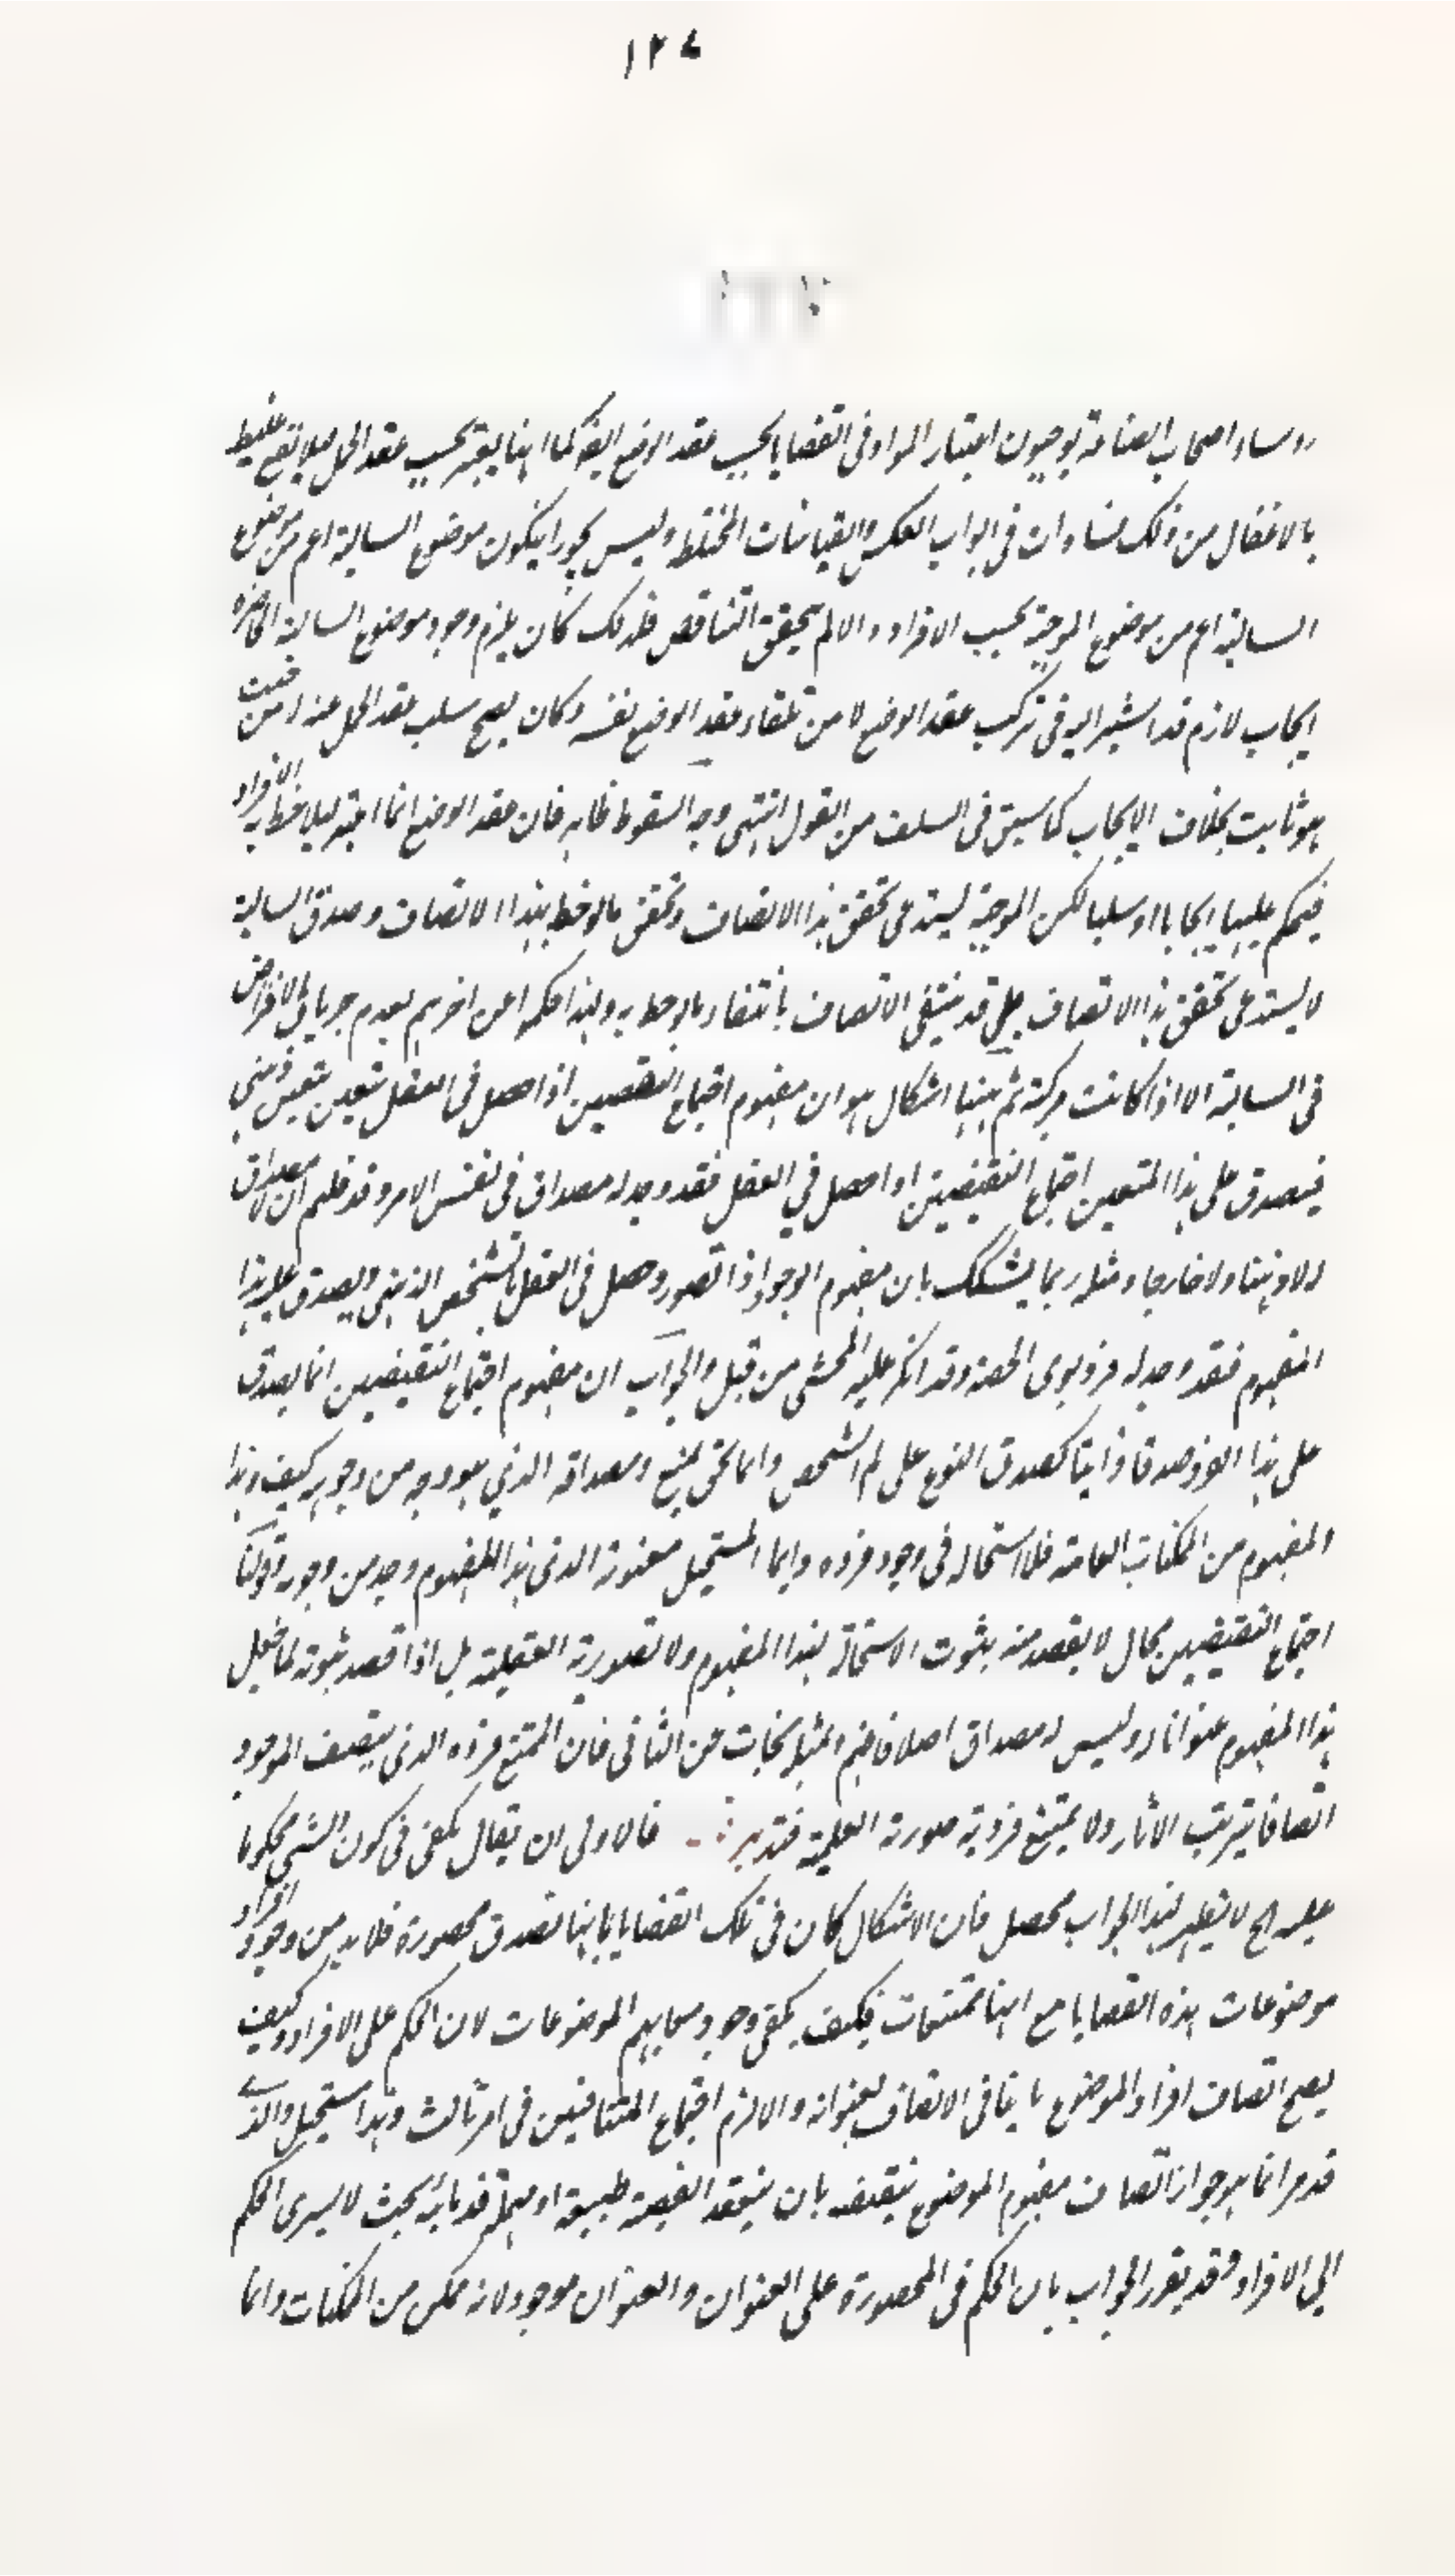 ١٢٤
روساء اصحاب الصناعة يوجبون اعتبار المواد فى القضايا بحسب عقد الوضع ايضا كما انها يعتبر بحسب عقد الحمل ليلا يقع غليط
بالاغفال من ذلك فسادات فى ابواب العكس والقياسات المختلطة وليس يجوز ان يكون موضوع السالبة اعم من موضوع
السالبة اعم من موضوع الموجبة بحسب الافراد والا لم يتحقق التناقض فلذلك كان يلزم وجود موضوع السالبة
ايجاب لازم قد اشير اليه فى تركيب عقد الوضع لا من تلقاء عقد الوضع نفسه وكان يصح سلب عقد الحمل عنه لا من حيث
هو ثابت بخلاف الايجاب كما سبق فى السلف من القول انتهى وجه السقوط ظاهر فان عقد الوضع انما اعتبر ليلاحظ به الافراد
فيحكم عليها ايجابا او سلبا لكن الموجبة يستدعى تحقق هذا الاتصاف وتحقق مالوحظ بهذا الاتصاف وصدق السالبة
لا يستدعى تحقق هذا الاتصاف بل قد ينتفى الاتصاف بانتفاء مالوحظ به ولهذا حكموا عن اخرهم بعدم جريان الافتراض
فى السالبة الا اذا كانت مركبة ثم ههنا اشكال هو ان مفهوم اجتماع النقيضين اذا حصل فى العقل يتعين بتعين ذهنى
فيصدق على هذا المتعين اجتماع النقيضين اذا حصل في العقل فقد وجد له مصداق فى نفس الامر وقد قلتم ان لا مصداق
له لا ذهنا ولا خارجا ومثله ربما يشكك بان مفهوم الوجود اذا تصور وحصل فى العقل بالتشخص الذهنى ويصدق عليه هذا
المفهوم فقد وجد له فرد سوى الحصة وقد انكر عليه المحشى من قبل والجواب ان مفهوم اجتماع النقيضين انما يصدق
على هذا الفرد صدقا ذاتيا كصدق النوع على الشخص وانما يمتنع مصداقه الذي هو وجه من وجوهه كيف وهذا
المفهوم من الممكنات العامة فلا استحالة فى وجود فرده وانما المستحيل معنونه الذى هذا المفهوم وجه من وجوهه وقولنا
اجتماع النقيضين محال لا يقصد منه بثبوت الاستحالة لهذا المفهوم ولا لصورته العقلية بل اذا قصد ثبوته لما جعل
هذا المفهوم عنوانا له وليس له مصداق اصلا فافهم وبمثله يجاب عن الثانى فان الممتنع فرده الذى يتصف الموجود
اتصافا يترتب الاثار ولا يمتنع فردية صورته العلمية فتدبر فالاولى ان يقال يكفى فى كون الشئ محكوما
عليه الح لا يظهر لهذا الجواب محصل فان الاشكال كان فى تلك القضايا بانها تصدق محصورة فلا بد من وجود افراد
موضوعات هذه القضايا مع انها ممتنعات فكيف يكفى وجود الموضوعات لان الحكم على الافراد وكيف
يصح اتصاف افراد الموضوع بما ينافى الاتصاف بعنوانه والا لزم اجتماع المتنافيين فى امر ثالث وهذا مستحيل والذى
قد مر انما هو جواز اتصاف مفهوم الموضوع بنقيضه بان ينعقد القضية طبيعية او مهملة قدمائية بحيث لا يسرى الحكم
الى الافراد وقد يقرر الجواب بان الحكم فى المحصورة على العنوان والعنوان موجود لانه ممكن من الممكنات وانما